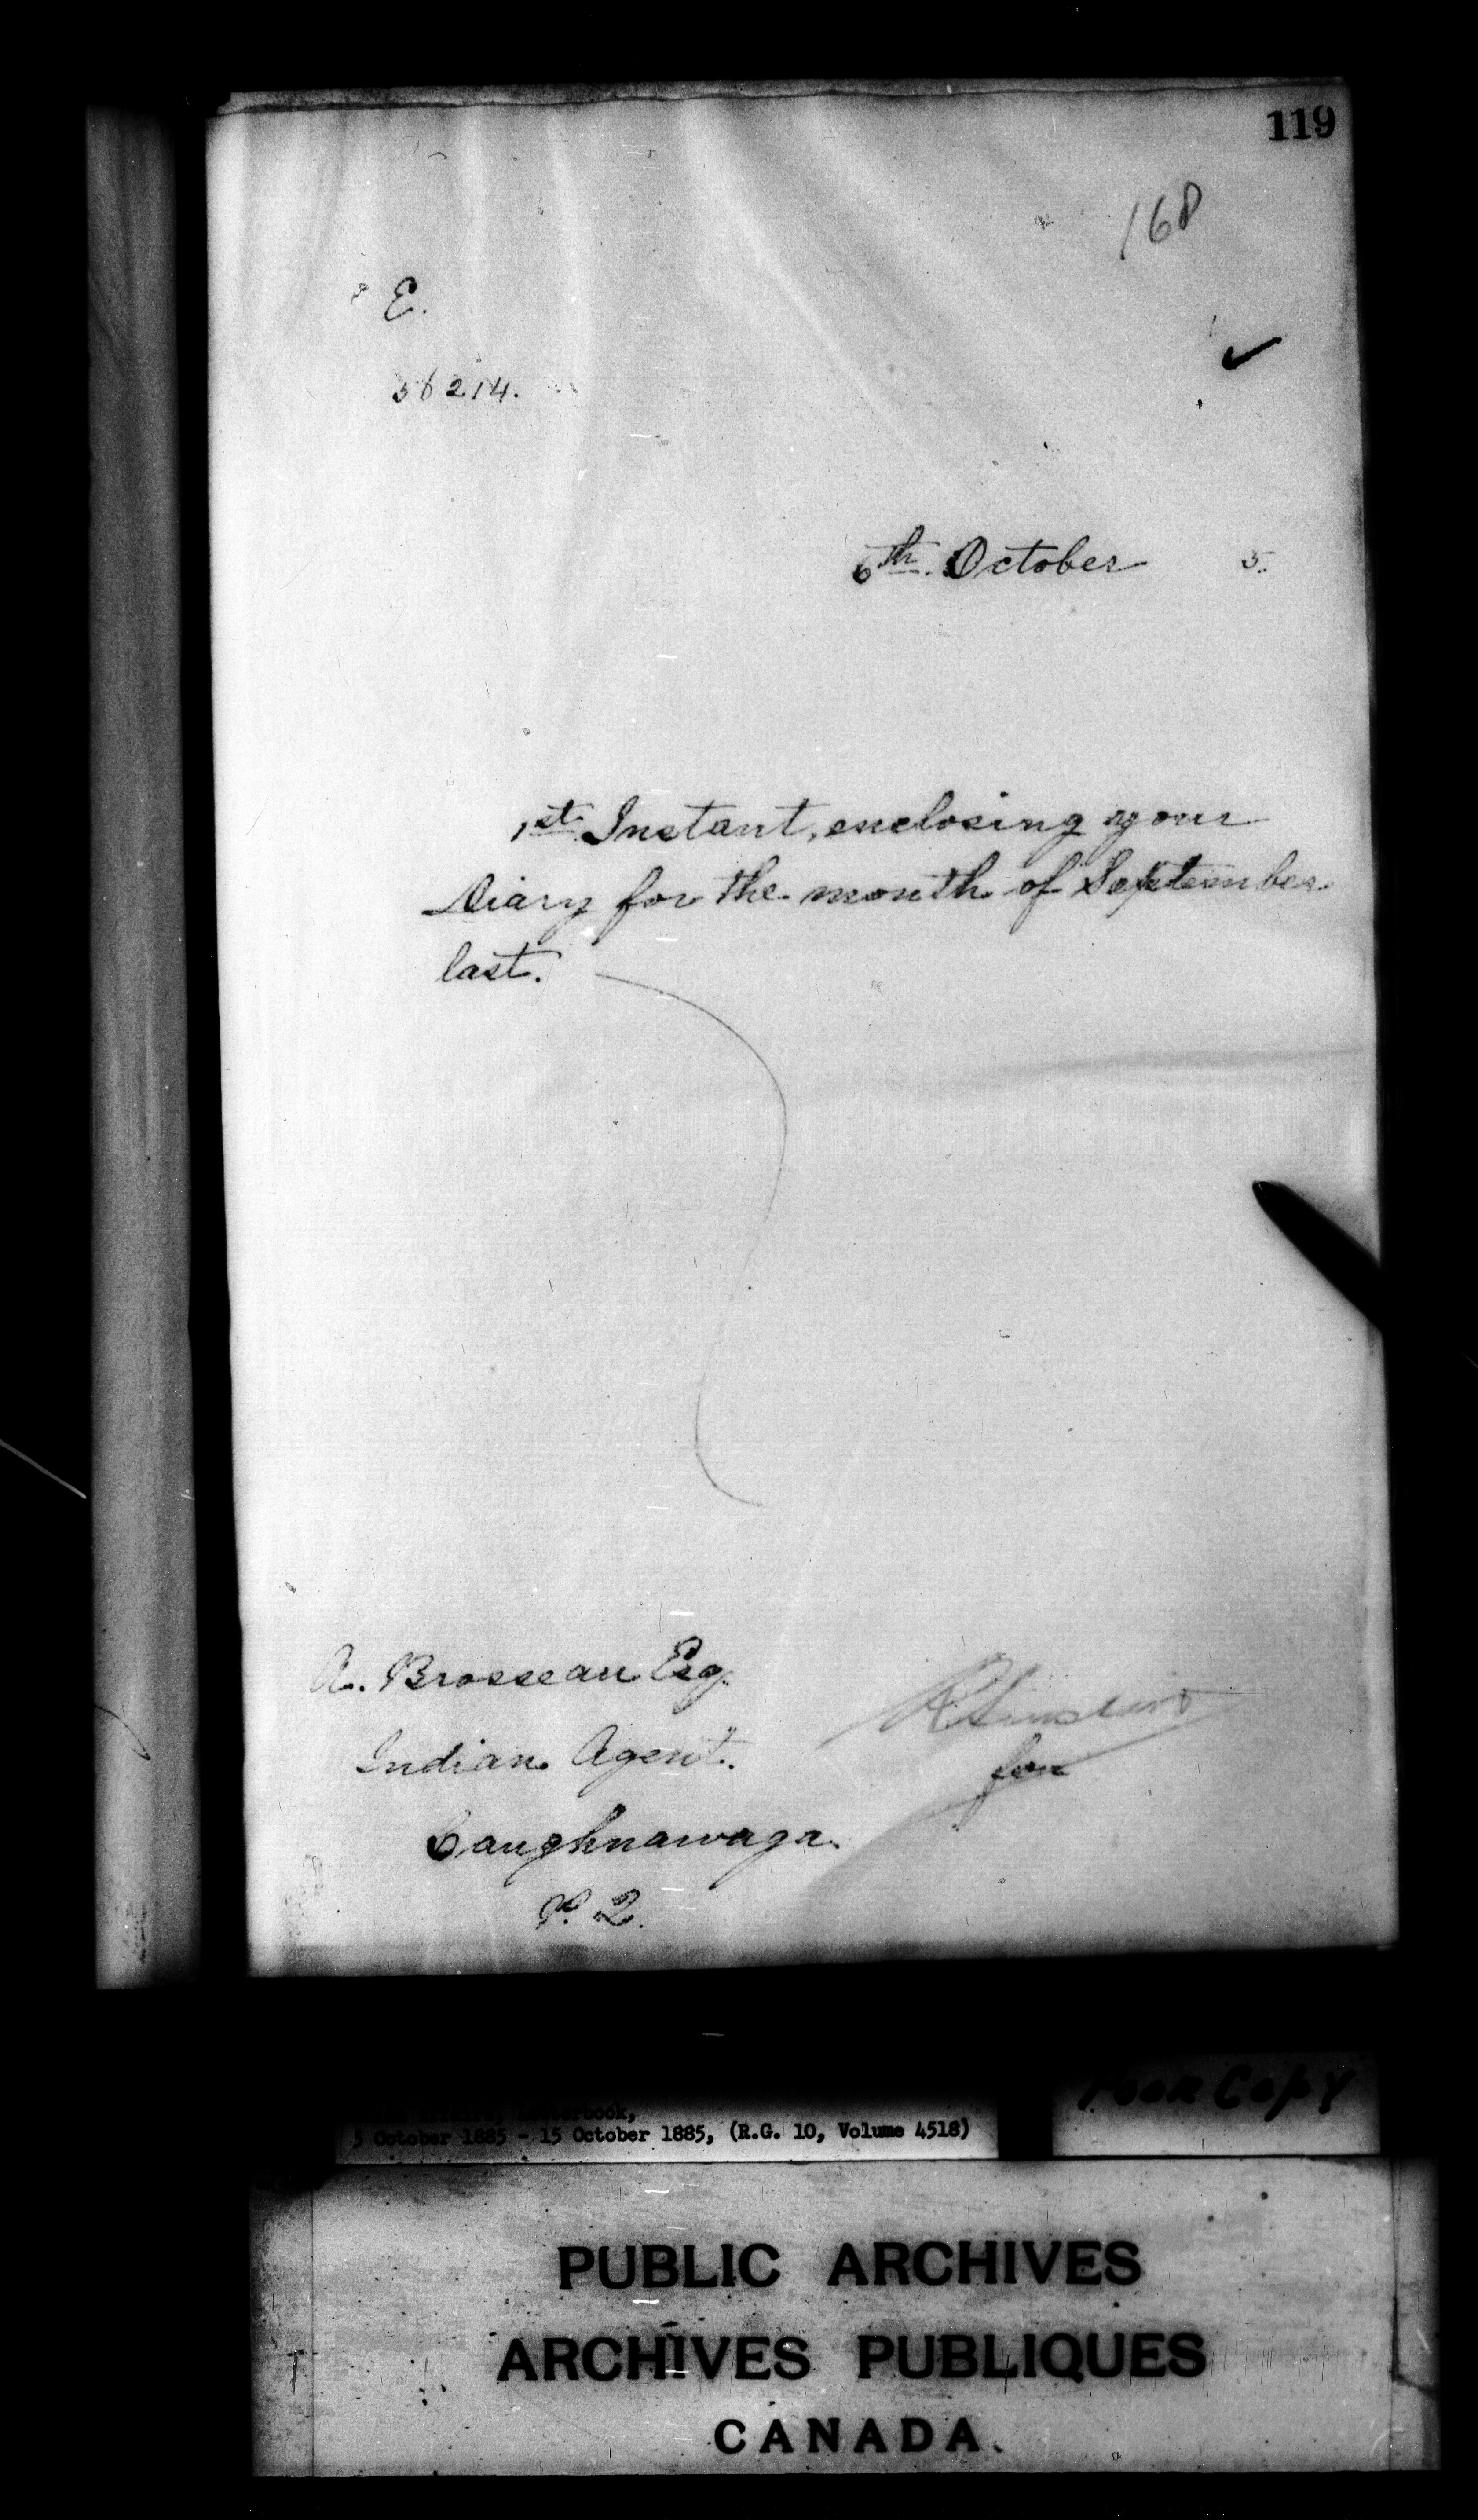 119
168
E.
56214.
6th. October 5.
1st. Instant, enclosing your
Diary for the month of September
last.
A. Brosseau Esq.
Indian Agent.
for
Caughnawaga.
P. Q.
Poor Copy
5 October 1885 - 15 October 1885, (R.G. 10, Volume 4518)
PUBLIC ARCHIVES
ARCHIVES PUBLIQUES
CANADA